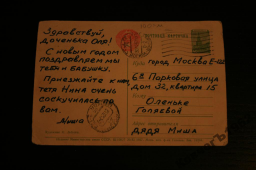 Здравствуй,
доченька Оля!
С новым годом
поздравляем мы
тебя и бабушку.
Приезжайте к нам
тетя Нина очень
соскучилась по
вам.
Миша
ПОЧТОВАЯ КАРТОЧКА
Куда город Москва Е-
6я Парковая улица
дом 32, квартира 15
Оленьке
Голяевой
дядя Миша